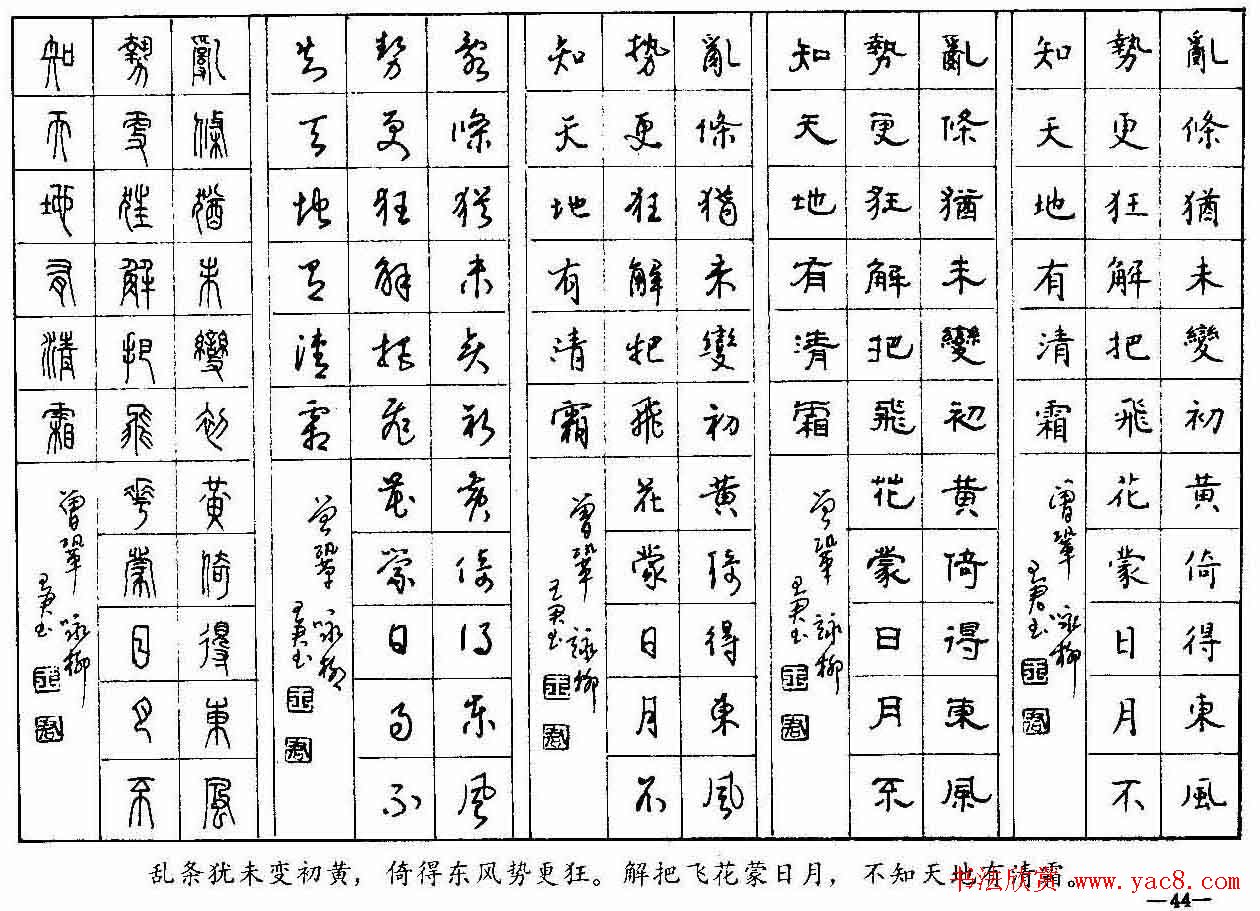 亂條猶未變初黃倚得東風
勢更狂解把飛花蒙日月不
知天地有清霜
曾鞏 咏柳
王君书
亂條猶未變初黃倚得東風
勢更狂解把飛花蒙日月不
知天地有清霜
曾鞏 詠柳
王君书
亂條猶未變初黃倚得東風
勢更狂解把飛花蒙日月不
知天地有清霜
曾鞏 詠柳
王君书
亂條猶未變初黃倚得東風
勢更狂解把飛花蒙日月不
知天地有清霜
曾鞏 咏柳
王君书
亂條猶未變初黃倚得東風
勢更狂解把飛花蒙日月不
知天地有清霜
曾鞏 咏柳
王君书
乱条犹未变初黄，倚得东风势更狂。解把飞花蒙日月，不知天地有清霜。
书法欣赏 www.yac8.com
—44—